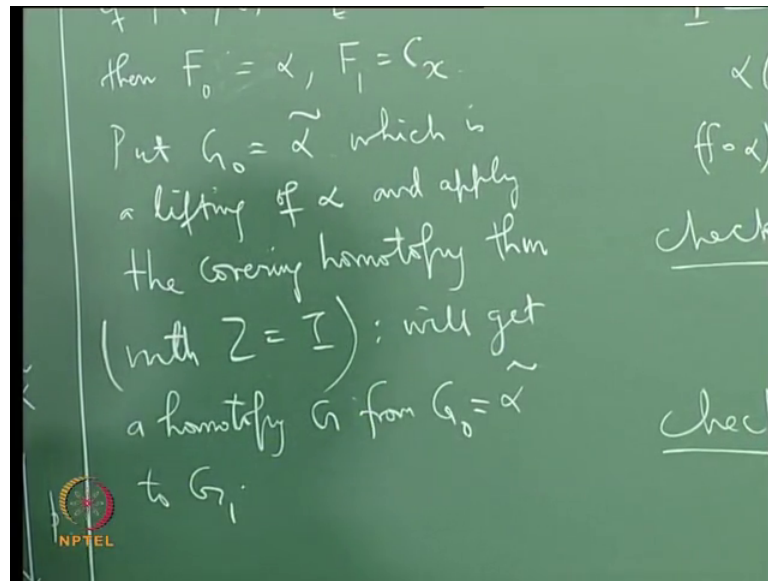 then F₀ = α, F₁ = Cₓ.
Put G₀ = α̃ which is
a lifting of α and apply
the covering homotopy thm
(with Z = I): will get
a homotopy G from G₀ = α̃
to G₁
I
α(
(f∘α)
check
chec
NPTEL